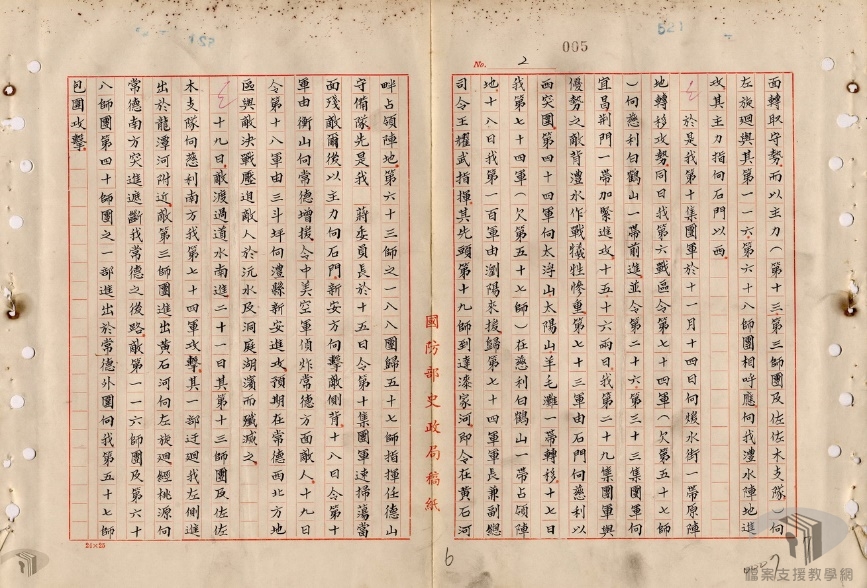 005
No. 2
面轉取守勢而以主力(第十三.第三師團及佐佐木支隊)向
左旋迴與其第一一六.第六十八師團相呼應向我澧水陣地進
攻其主力指向石門以西
於是我第十集團軍於十一月十四日向煖水街一帶原陣
地轉移攻勢同日我第六戰區令第七十四軍(欠第五十七師
)向慈利白鶴山一帶前進並令第二十六.第三十三集團軍向
宜昌荊門一帶加緊進攻十五十六兩日.我第二十九集團軍與
優勢之敵背澧水作戰犧牲慘重.第七十三軍由石門向慈利以
西突圍.第四十四軍向太浮山太陽山羊毛灘一帶轉移.十七日
我第七十四軍(欠第五十七師)在慈利白鶴山一帶占領陣
地.十八日我第一百軍由瀏陽來援歸第七十四軍軍長兼副總
司令王耀武指揮.其先頭第十九師到達漆家河.即令在黃石河
國防部史政局稿紙
畔占領陣地.第六十三師之一八八團歸五十七師指揮任德山
守備隊.先是我 蔣委員長於十五日令第十集團軍速掃蕩當
面殘敵爾後以主力向石門.新安方向擊敵側背.十八日令第十
軍由衡山向常德增援.令中美空軍偵炸常德方面敵人.十九日
令第十八軍由三斗坪向澧縣新安進攻.預期在常德西北方地
區與敵決戰壓迫敵人於沅水及洞庭湖濱而殲滅之.
十九日.敵渡過道水南進.二十一日其第十三師團及佐佐
木支隊向慈利南方我第七十四軍攻擊.其一部迂迴我左側進
出於龍潭河附近.敵第三師團進出黃石河向左旋迴經桃源向
常德南方突進遮斷我常德之後路.敵第一一六師團及第六十
八師團第四十師團之一部進出於常德外圍向我第五十七師
包圍攻擊.
24×25
6
7
檔案支援教學網